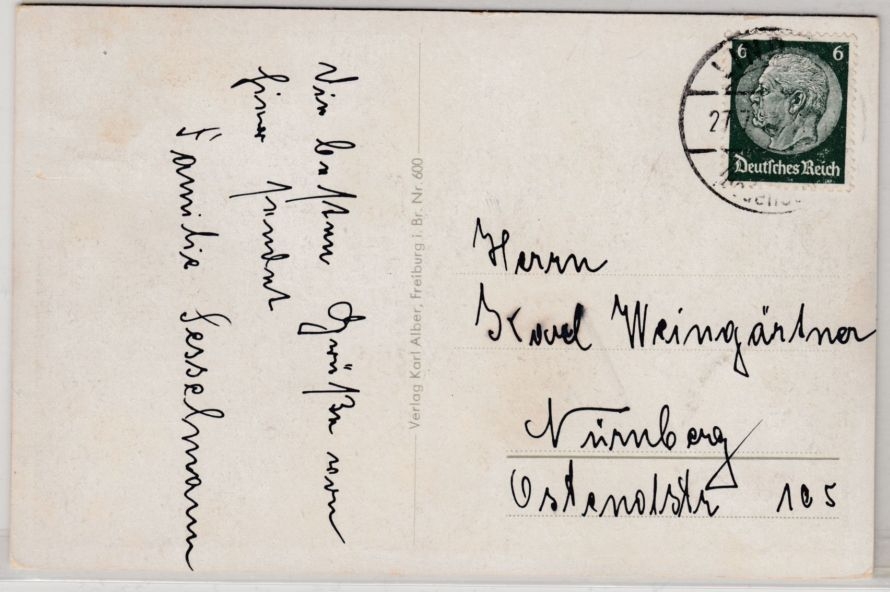 Die besten Grüße von
hier sendet
Familie Sesselmann
Verlag Karl Alber, Freiburg i. Br. Nr. 600
6 6
Deutsches Reich
27.
Herrn
Karl Weingärtner
Nürnberg
Ostendstr 105